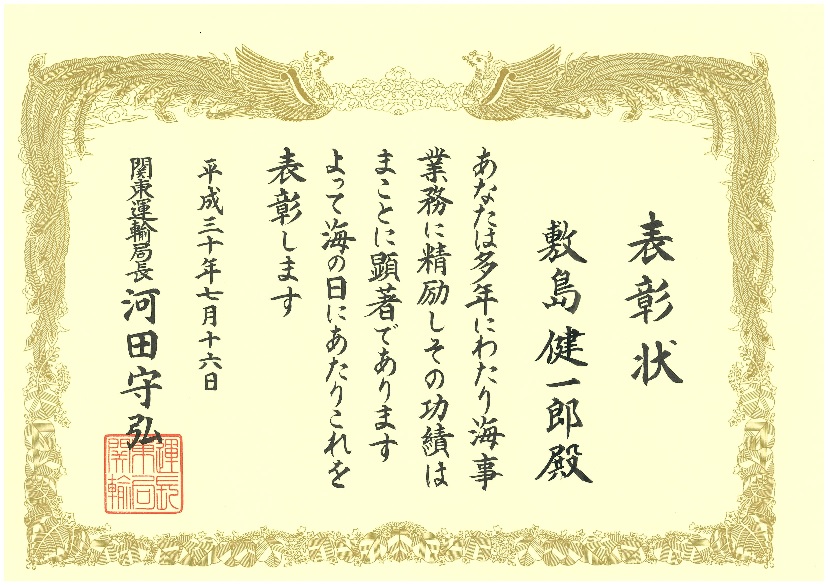 表彰状
敷島健一郎殿
あなたは多年にわたり海事
業務に精励しその功績は
まことに顕著であります
よって海の日にあたりこれを
表彰します
平成三十年七月十六日
関東運輸局長 河田守弘
運長
東局
関輸